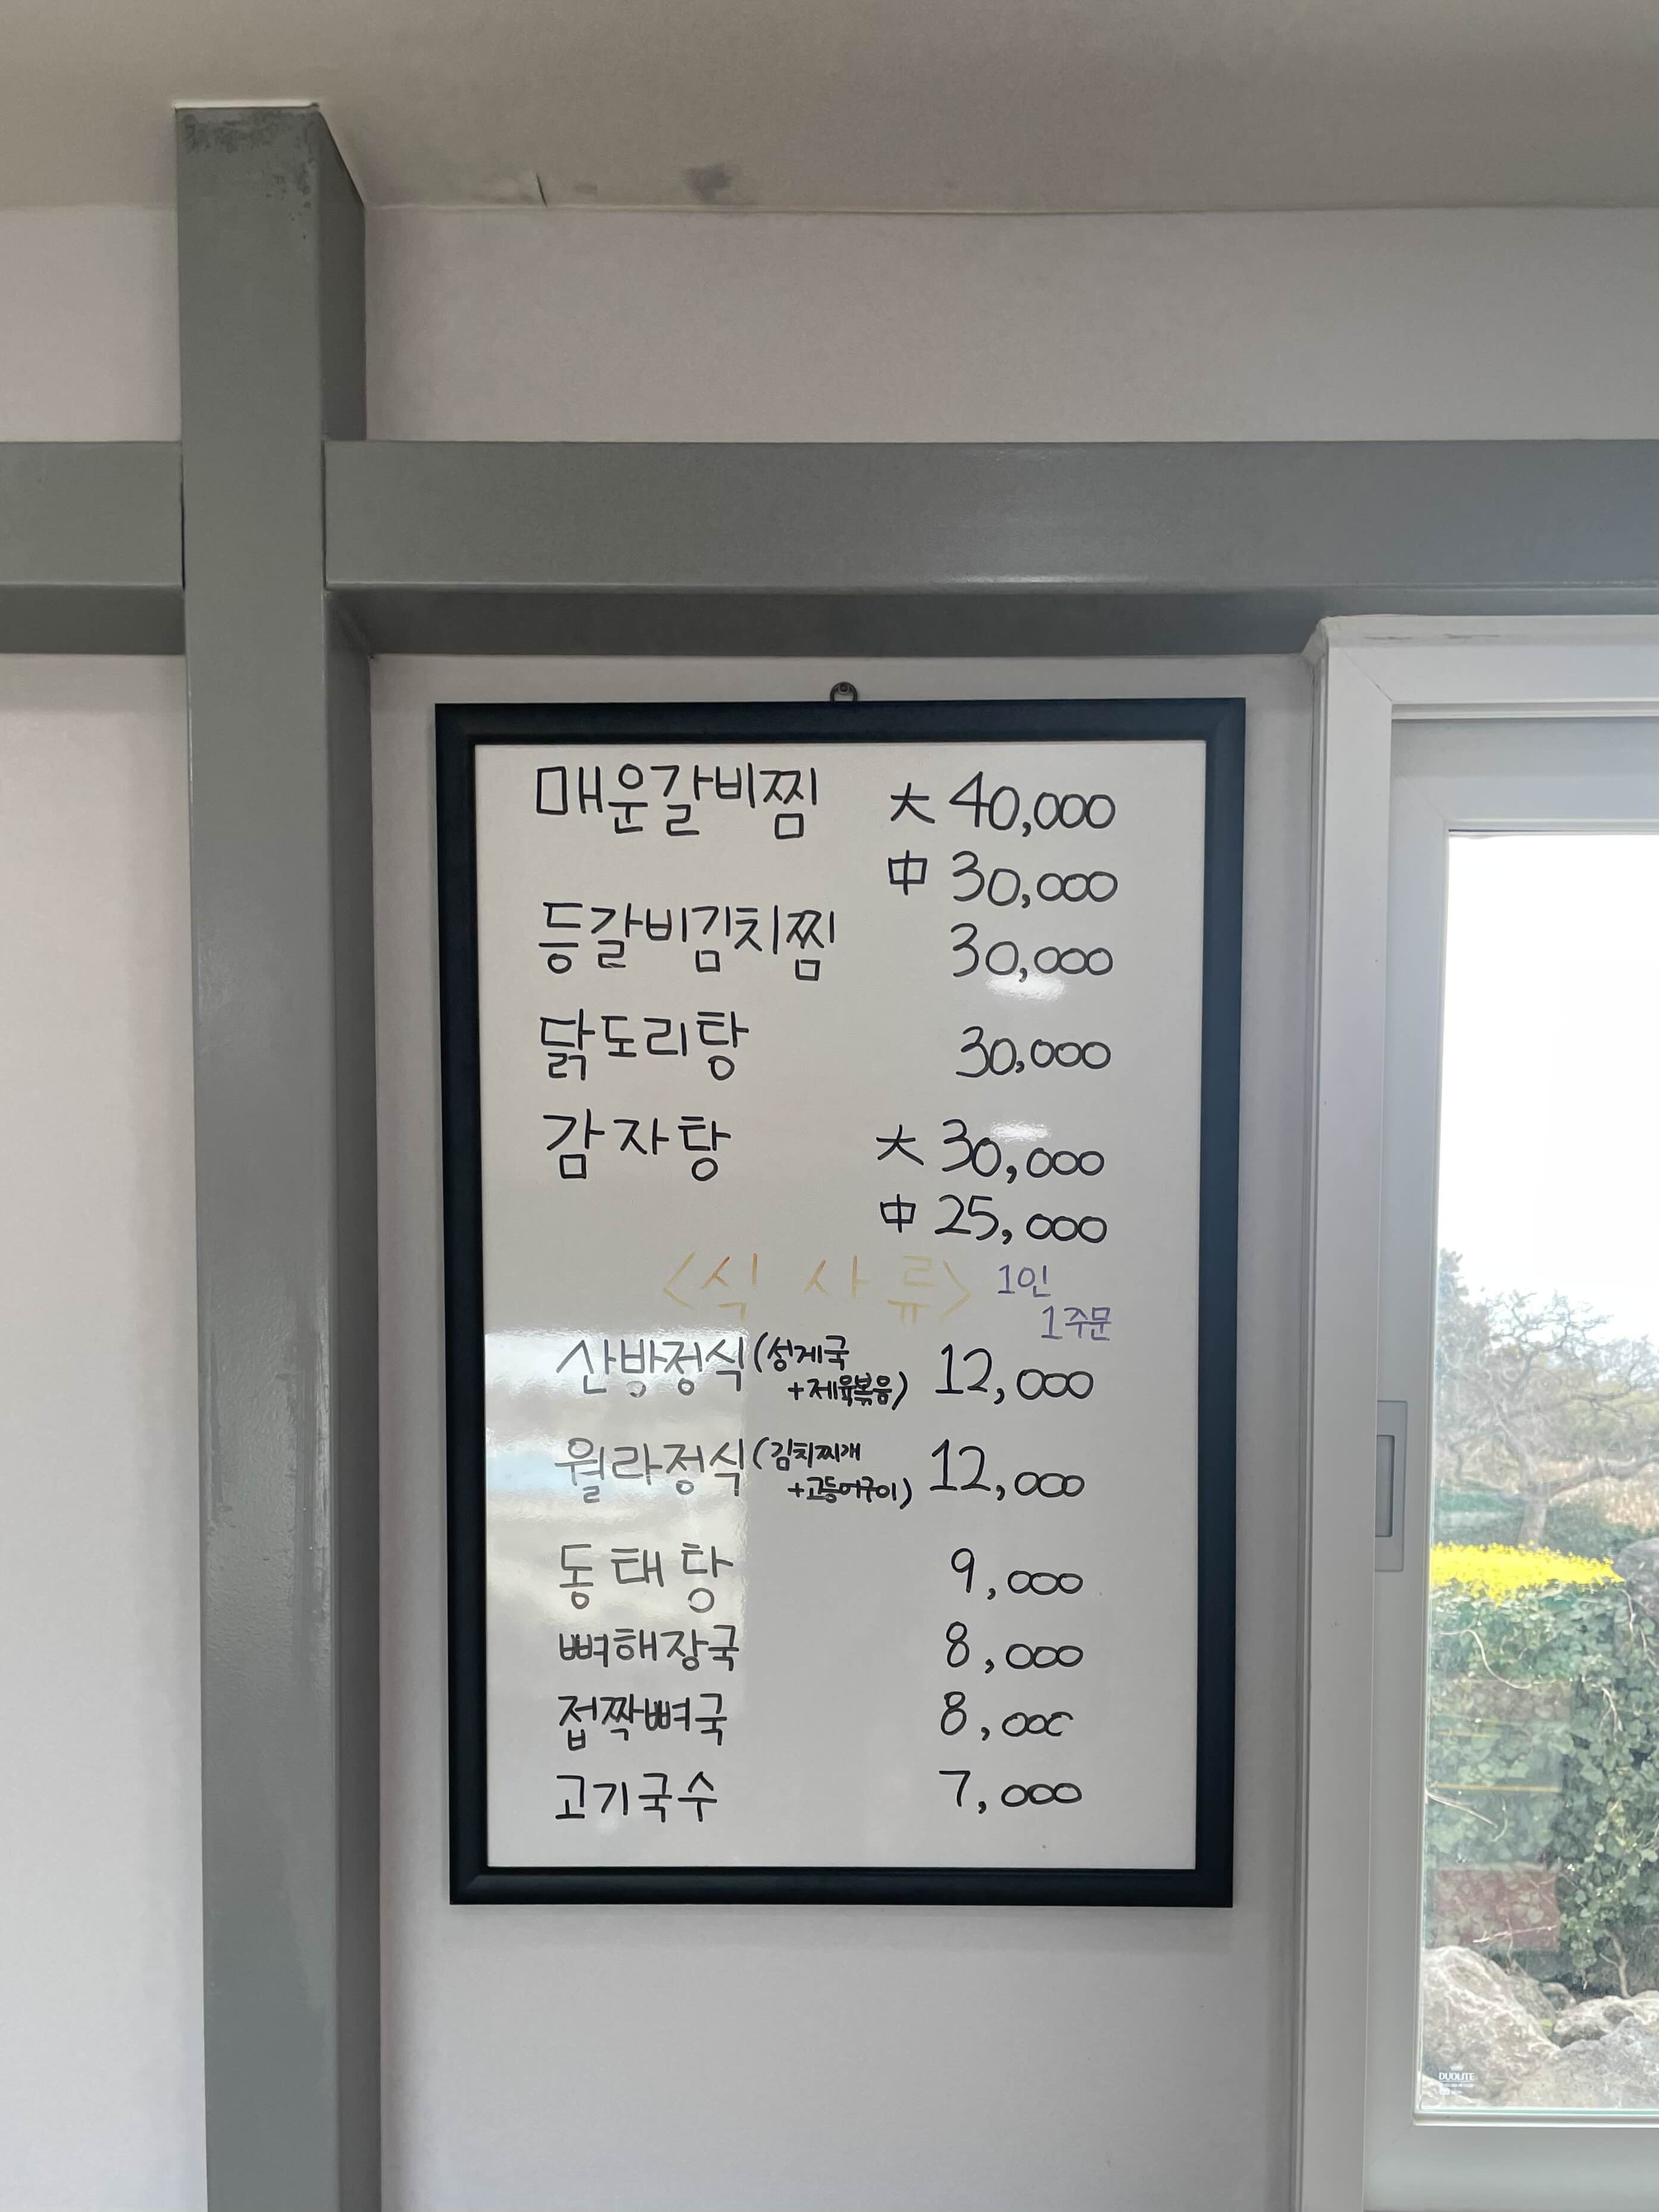 매운갈비찜 大 40,000
中 30,000
등갈비김치찜 30,000
닭도리탕 30,000
감자탕 大 30,000
中 25,000
<식 사 류> 1인
1주문
산방정식(성게국
+제육볶음) 12,000
월라정식(김치찌개
+고등어구이) 12,000
동태탕 9,000
뼈해장국 8,000
접짝뼈국 8,000
고기국수 7,000
DUOLITE